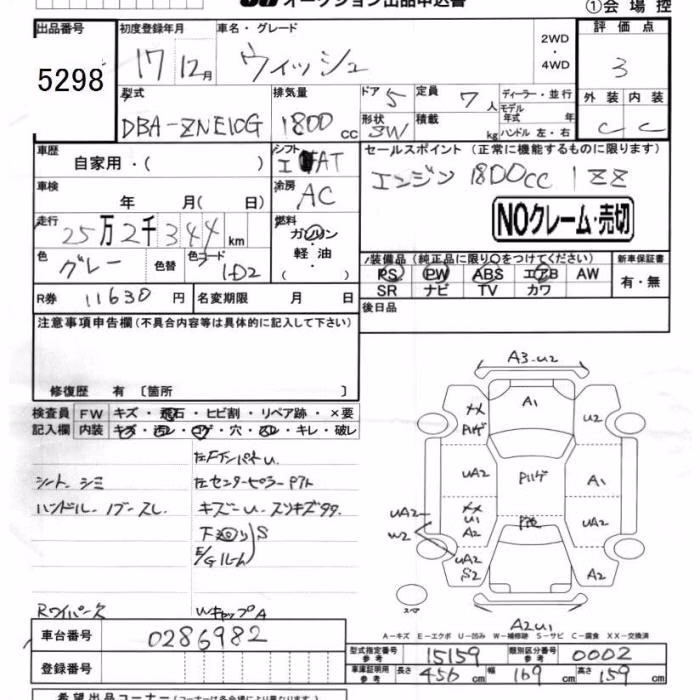 オークション出品申込書
①会場控
出品番号 初度登録年月 車名・グレード 2WD・4WD 評価点
5298 17年12月 ウィッシュ 3
型式 排気量 ドア 5 定員 7人 ディーラー・並行 外装 内装
DBA-ZNE10G 1800cc 形状 SW 積載 kg モデル年式 年 ハンドル 左・右 C C
車歴 自家用・( ) シフト AT セールスポイント (正常に機能するものに限ります)
車検 年 月( 日) 冷房 AC エンジン 1800cc 1ZZ
NOクレーム・売切
走行 25万2千344km 燃料 ガソリン・軽油・( )
色 グレー 色替 色コード 1D2 装備品 (純正品に限り○をつけてください) 新車保証書
PS PW ABS エアB AW 有・無
SR ナビ TV カワ
R券 11630円 名変期限 月 日 後日品
注意事項申告欄(不具合内容等は具体的に記入して下さい)
修復歴 有〔箇所 〕
検査員 FW キズ・飛石・ヒビ割・リペア跡・×要
記入欄 内装 キズ・汚レ・コゲ・穴・スレ・キレ・破レ
シート シミ
ハンドル・ノブスレ
左センターピラー
キズ
下廻りS
E/Gルーム
Rワイパー欠
WキャップA
A3 U2
A1
U2
UA2
A1
UA2
U1
A2
UA2
W2
UA2
S2
A2
スペア
A2U1
A-キズ E-エクボ U-凹み W-補修跡 S-サビ C-腐食 XX-交換済
車台番号 0286982
登録番号
型式指定番号 参考 15159 類別区分番号 参考 0002
車庫証明用 参考 長さ 456cm 幅 169cm 高さ 159cm
希望出品コーナー